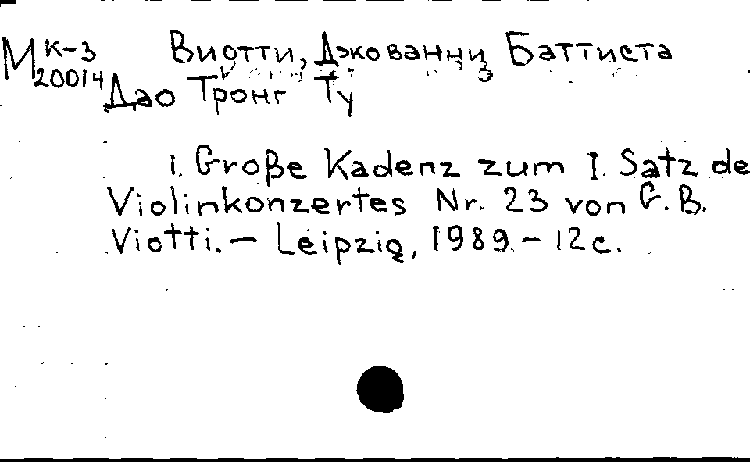 М К-3 Виотти, Джованни Баттиста
20014 Дао Тронг Ту
1. Große Kadenz zum I. Satz de
Violinkonzertes Nr. 23 von G. B.
Viotti. — Leipzig, 1989. — 12 с.